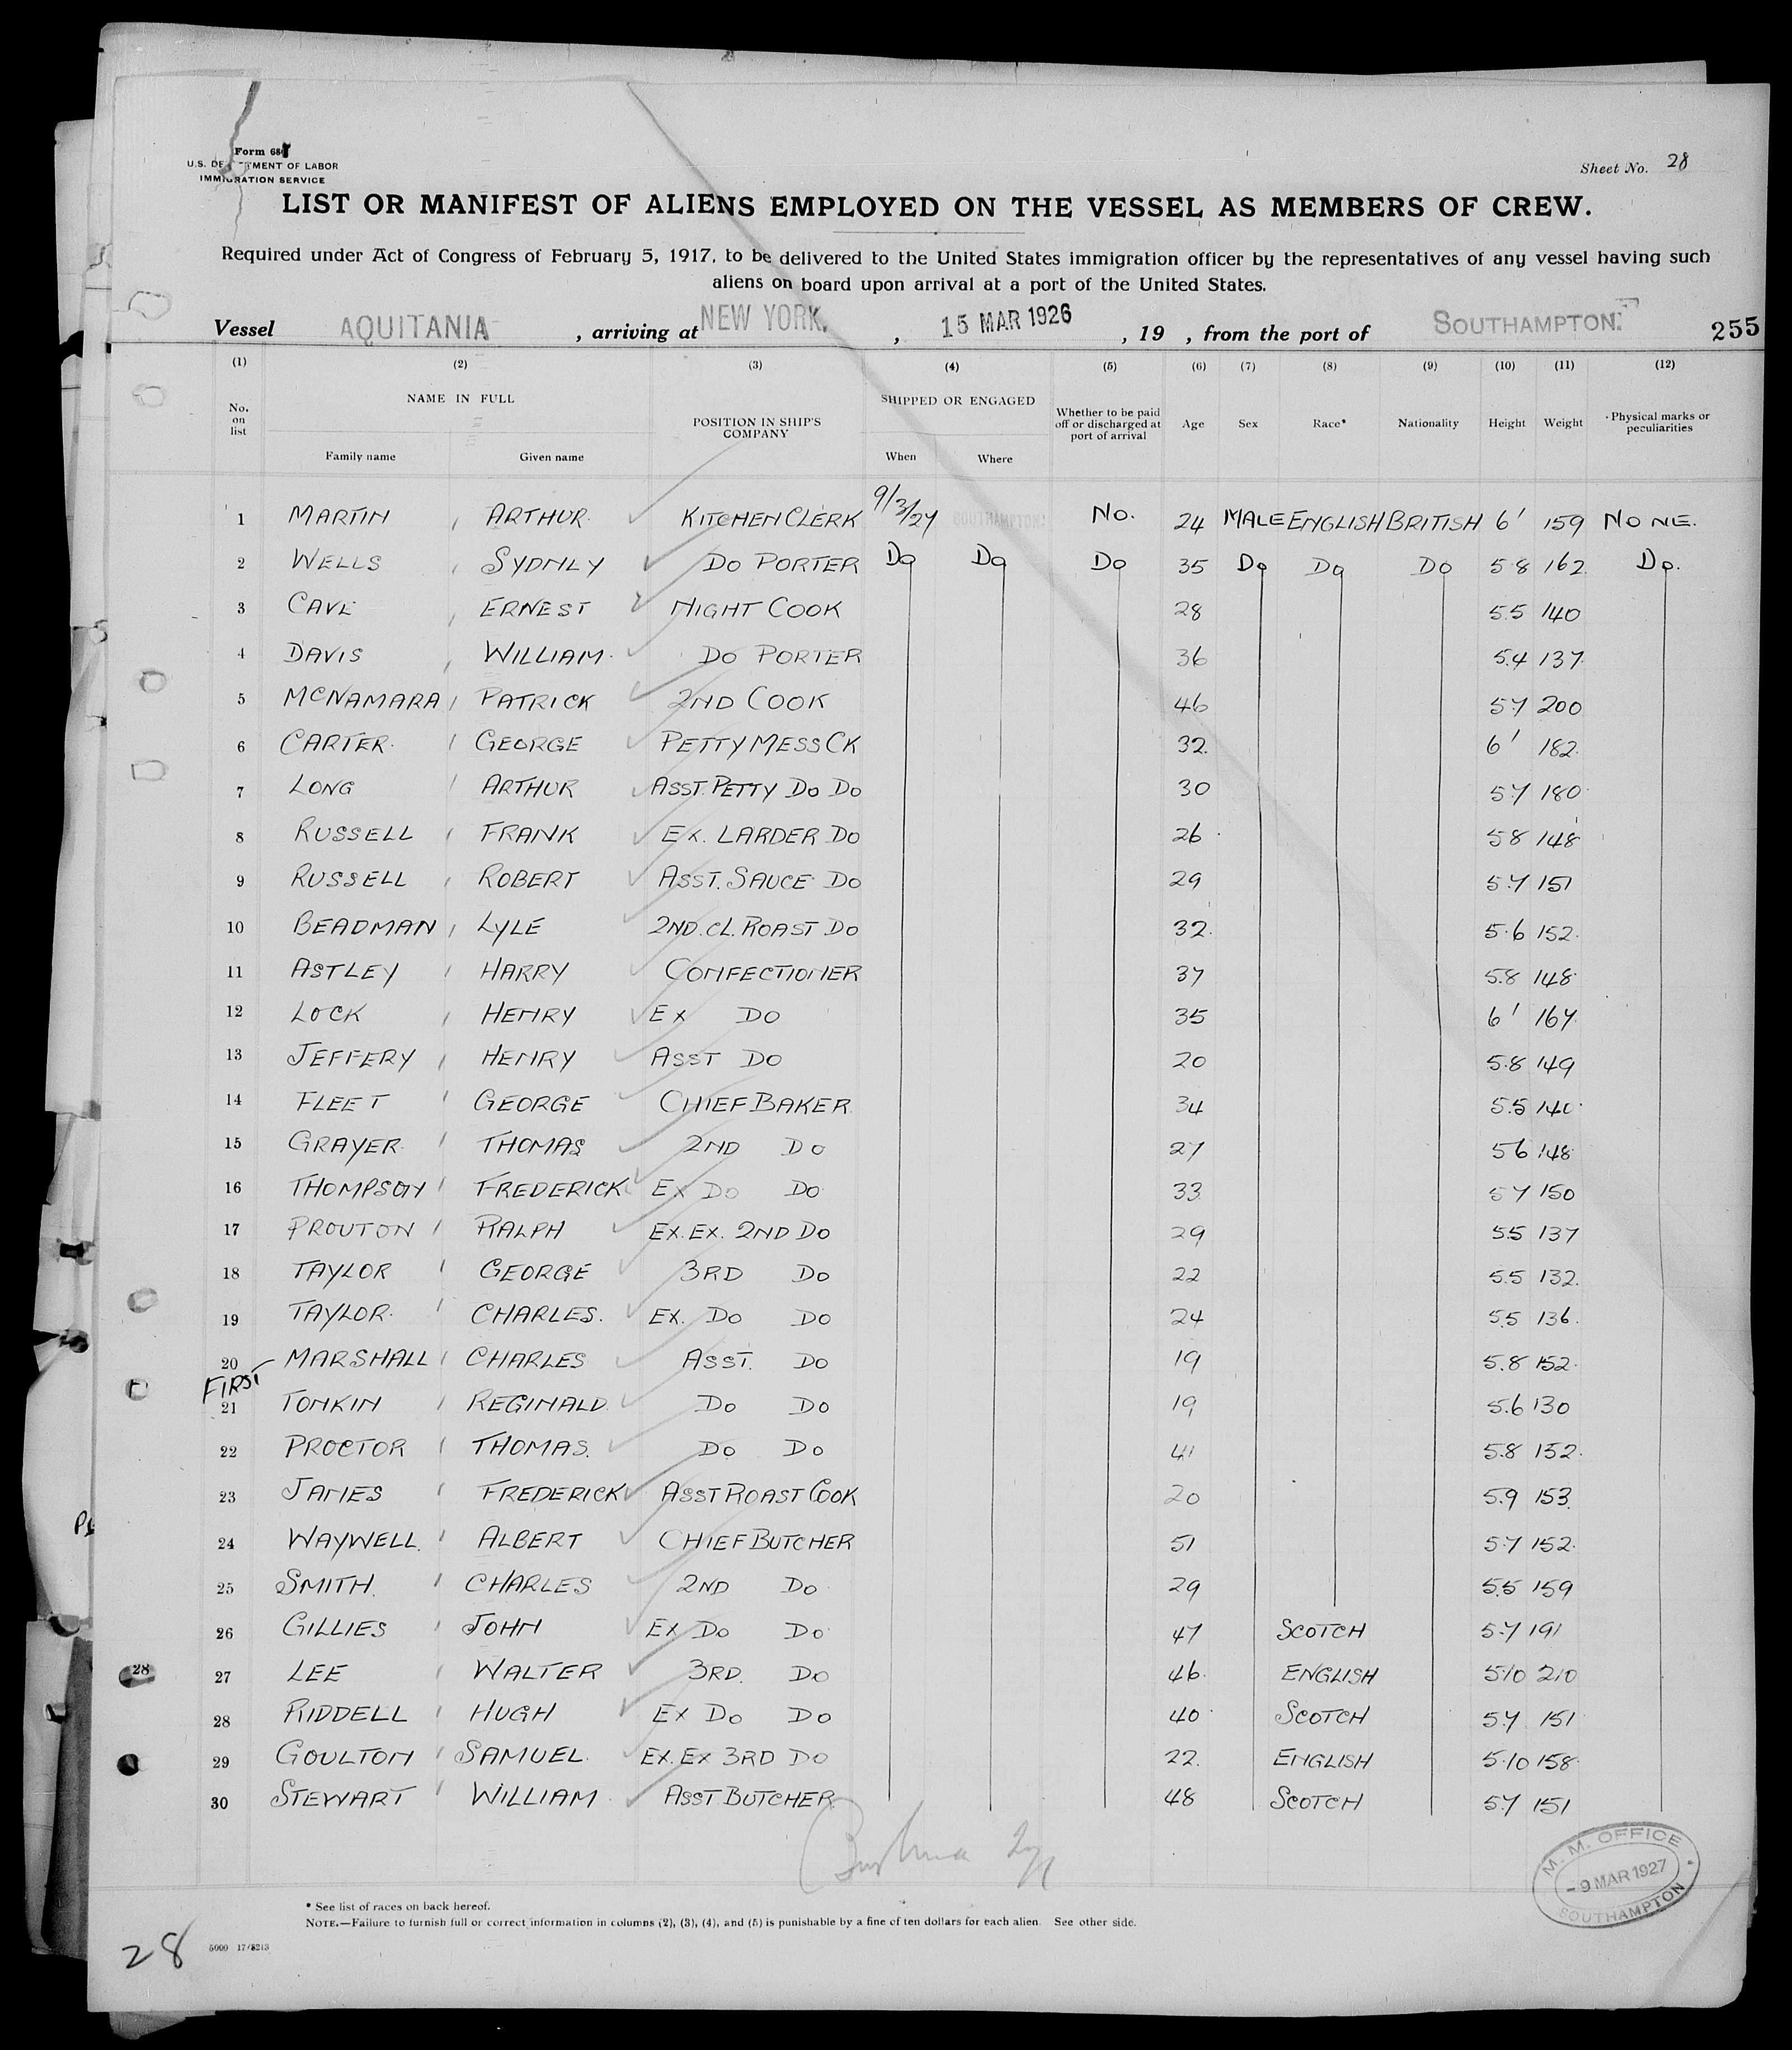 Form 68
U.S. DEPARTMENT OF LABOR
IMMIGRATION SERVICE
Sheet No. 28
LIST OR MANIFEST OF ALIENS EMPLOYED ON THE VESSEL AS MEMBERS OF CREW.
Required under Act of Congress of February 5, 1917, to be delivered to the United States immigration officer by the representatives of any vessel having such
aliens on board upon arrival at a port of the United States.
Vessel AQUITANIA , arriving at NEW YORK. , 15 MAR 1926 , 19 , from the port of SOUTHAMPTON. 255
(1) (2) (3) (4) (5) (6) (7) (8) (9) (10) (11) (12)
No. on list NAME IN FULL Family name Given name POSITION IN SHIP'S COMPANY SHIPPED OR ENGAGED When Where Whether to be paid off or discharged at port of arrival Age Sex Race* Nationality Height Weight Physical marks or peculiarities
1 MARTIN , ARTHUR. KITCHEN CLERK 9/3/27 SOUTHAMPTON. No. 24 MALE ENGLISH BRITISH 6' 159 NONE.
2 WELLS , SYDNEY Do PORTER Do Do Do 35 Do Do Do 5 8 162 Do.
3 CAVE , ERNEST NIGHT COOK 28 5.5 140
4 DAVIS , WILLIAM. DO PORTER 36 5.4 137
5 McNAMARA , PATRICK 2ND COOK 46 5.7 200
6 CARTER. , GEORGE PETTY MESS CK 32. 6' 182.
7 LONG , ARTHUR ASST. PETTY Do Do 30 5.7 180
8 RUSSELL , FRANK EX. LARDER DO 26 5 8 148
9 RUSSELL , ROBERT ASST. SAUCE DO 29 5.7 151
10 BEADMAN , LYLE 2ND. CL. ROAST DO 32. 5.6 152.
11 ASTLEY , HARRY CONFECTIONER 37 5.8 148
12 LOCK , HENRY EX DO 35 6' 167.
13 JEFFERY , HENRY ASST DO 20 5.8 149
14 FLEET , GEORGE CHIEF BAKER 34 5.5 140.
15 GRAYER. , THOMAS 2ND DO 27 5 6 148
16 THOMPSON , FREDERICK EX DO DO 33 5 7 150
17 PROUTON , RALPH EX. EX. 2ND DO 29 5.5 137
18 TAYLOR , GEORGE 3RD DO 22 5.5 132.
19 TAYLOR. , CHARLES. EX. DO DO 24 5.5 136.
20 MARSHALL , CHARLES ASST. DO 19 5.8 152.
FIRST
21 TONKIN , REGINALD. DO DO 19 5.6 130
22 PROCTOR , THOMAS. DO DO 41 5.8 152.
23 JAMES , FREDERICK ASST ROAST COOK 20 5.9 153.
24 WAYWELL. , ALBERT CHIEF BUTCHER 51 5.7 152.
25 SMITH. , CHARLES 2ND DO 29 5.5 159
26 GILLIES , JOHN EX DO DO 47 SCOTCH 5.7 191
27 LEE , WALTER 3RD. DO 46. ENGLISH 5.10 210
28 RIDDELL , HUGH EX DO DO 40 SCOTCH 5.7 151
29 GOULTON , SAMUEL EX. EX 3RD DO 22. ENGLISH 5.10 158.
30 STEWART , WILLIAM. ASST BUTCHER 48 SCOTCH 5.7 151
28
M. M. OFFICE
- 9 MAR 1927
SOUTHAMPTON
* See list of races on back hereof.
NOTE.—Failure to furnish full or correct information in columns (2), (3), (4), and (5) is punishable by a fine of ten dollars for each alien. See other side.
28 5000 17/8213